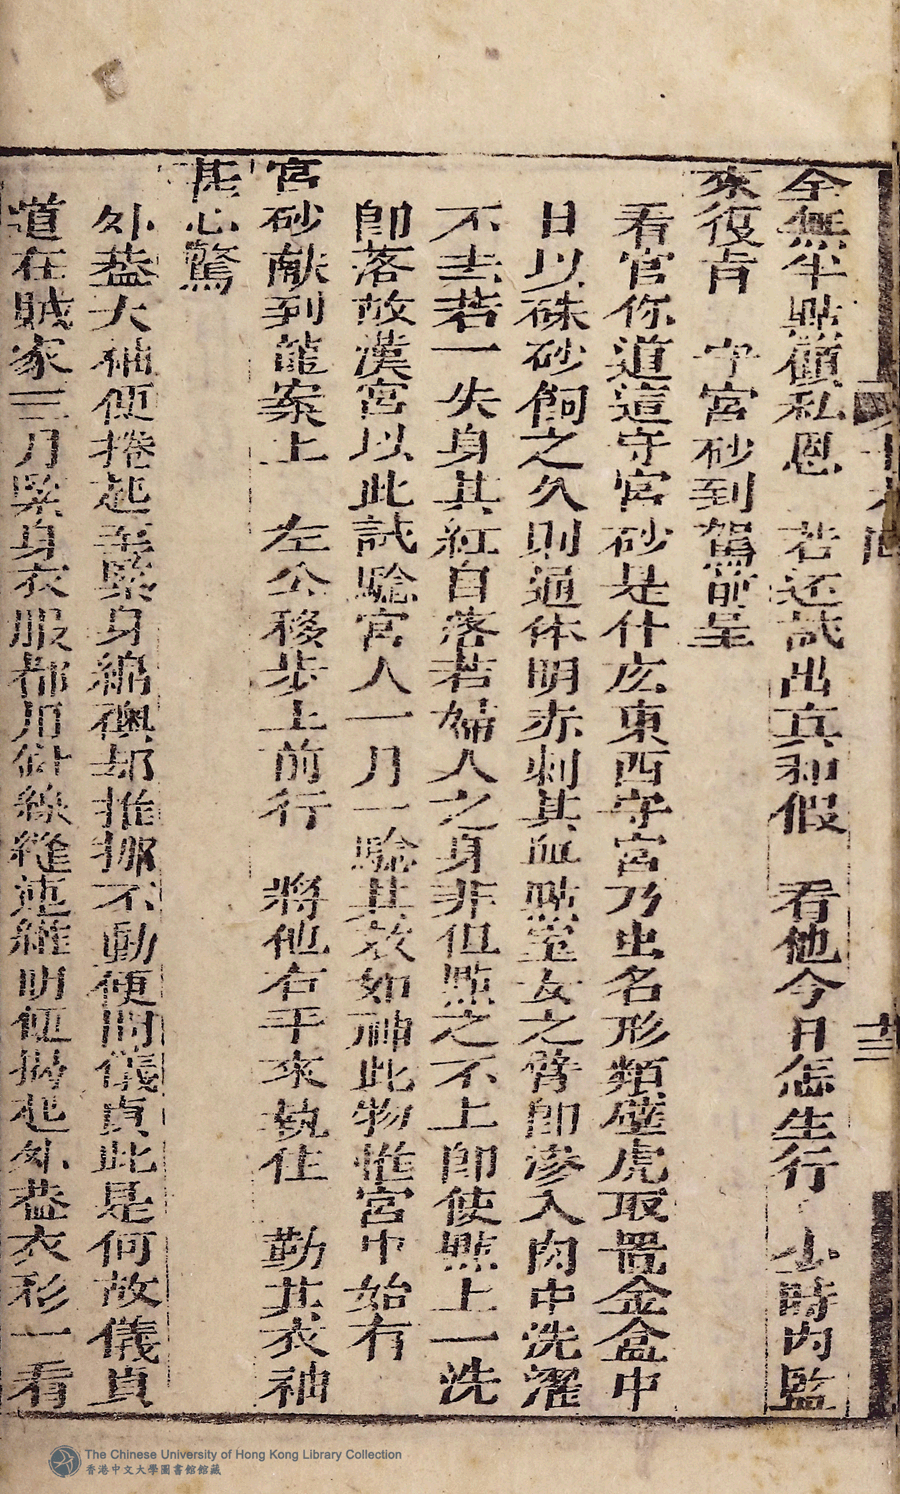 全無半點顧私恩　若还試出真和假　看他今日怎生行　少時內監
來復肯　守宮砂到駕前呈
看官你道這守宮砂是什庅東西守宮乃虫名形類壁虎取置金盒中
日以硃砂飼之久則通体明赤刺其血點室女之臂卽滲入肉中洗濯
不去若一失身其紅自落若婦人之身非但點之不上卽使點上一洗
卽落故漢宮以此試驗宮人一月一驗其效如神此物惟宮中始有
宮砂献到龍案上　左公移步上前行　將他右手來執住　勒其衣袖
甚心驚
外葢大袖便捲起至緊身綿襖却推挪不動便問儀貞此是何故儀貞
道在賊家三月緊身衣服都用針線縫連維明便揭起外葢衣衫一看
十九回
十三
The Chinese University of Hong Kong Library Collection
香港中文大學圖書館館藏